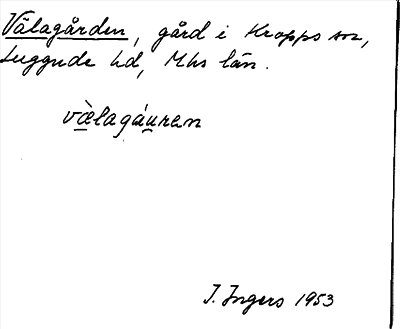 Välagården, gård i Kropps sn,
Luggude hd, Mhs län.
vä̀lagáuren
I. Ingers 1953